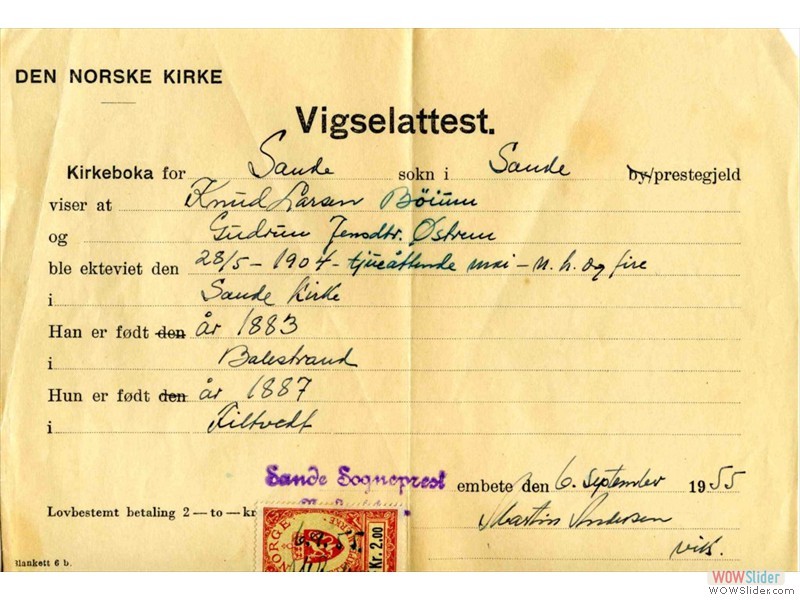 DEN NORSKE KIRKE
Vigselattest.
Kirkeboka for Sande sokn i Sande by/prestegjeld
viser at Knud Larsen Böium
og Gudrun Jensdtr. Østrem
ble ekteviet den 28/5 - 1904 - tjueåttende mai - n. h. og fire
i Sande kirke
Han er født den år 1883
i Balestrand
Hun er født den år 1887
i Filtvedt
Sande Sogneprest embete den 6. september 1955
Lovbestemt betaling 2 — to — kr
Martin Andersen
vik.
NORGE
6.9.55
Kr. 2.00
Blankett 6 b.
WOWSlider
WOWSlider.com